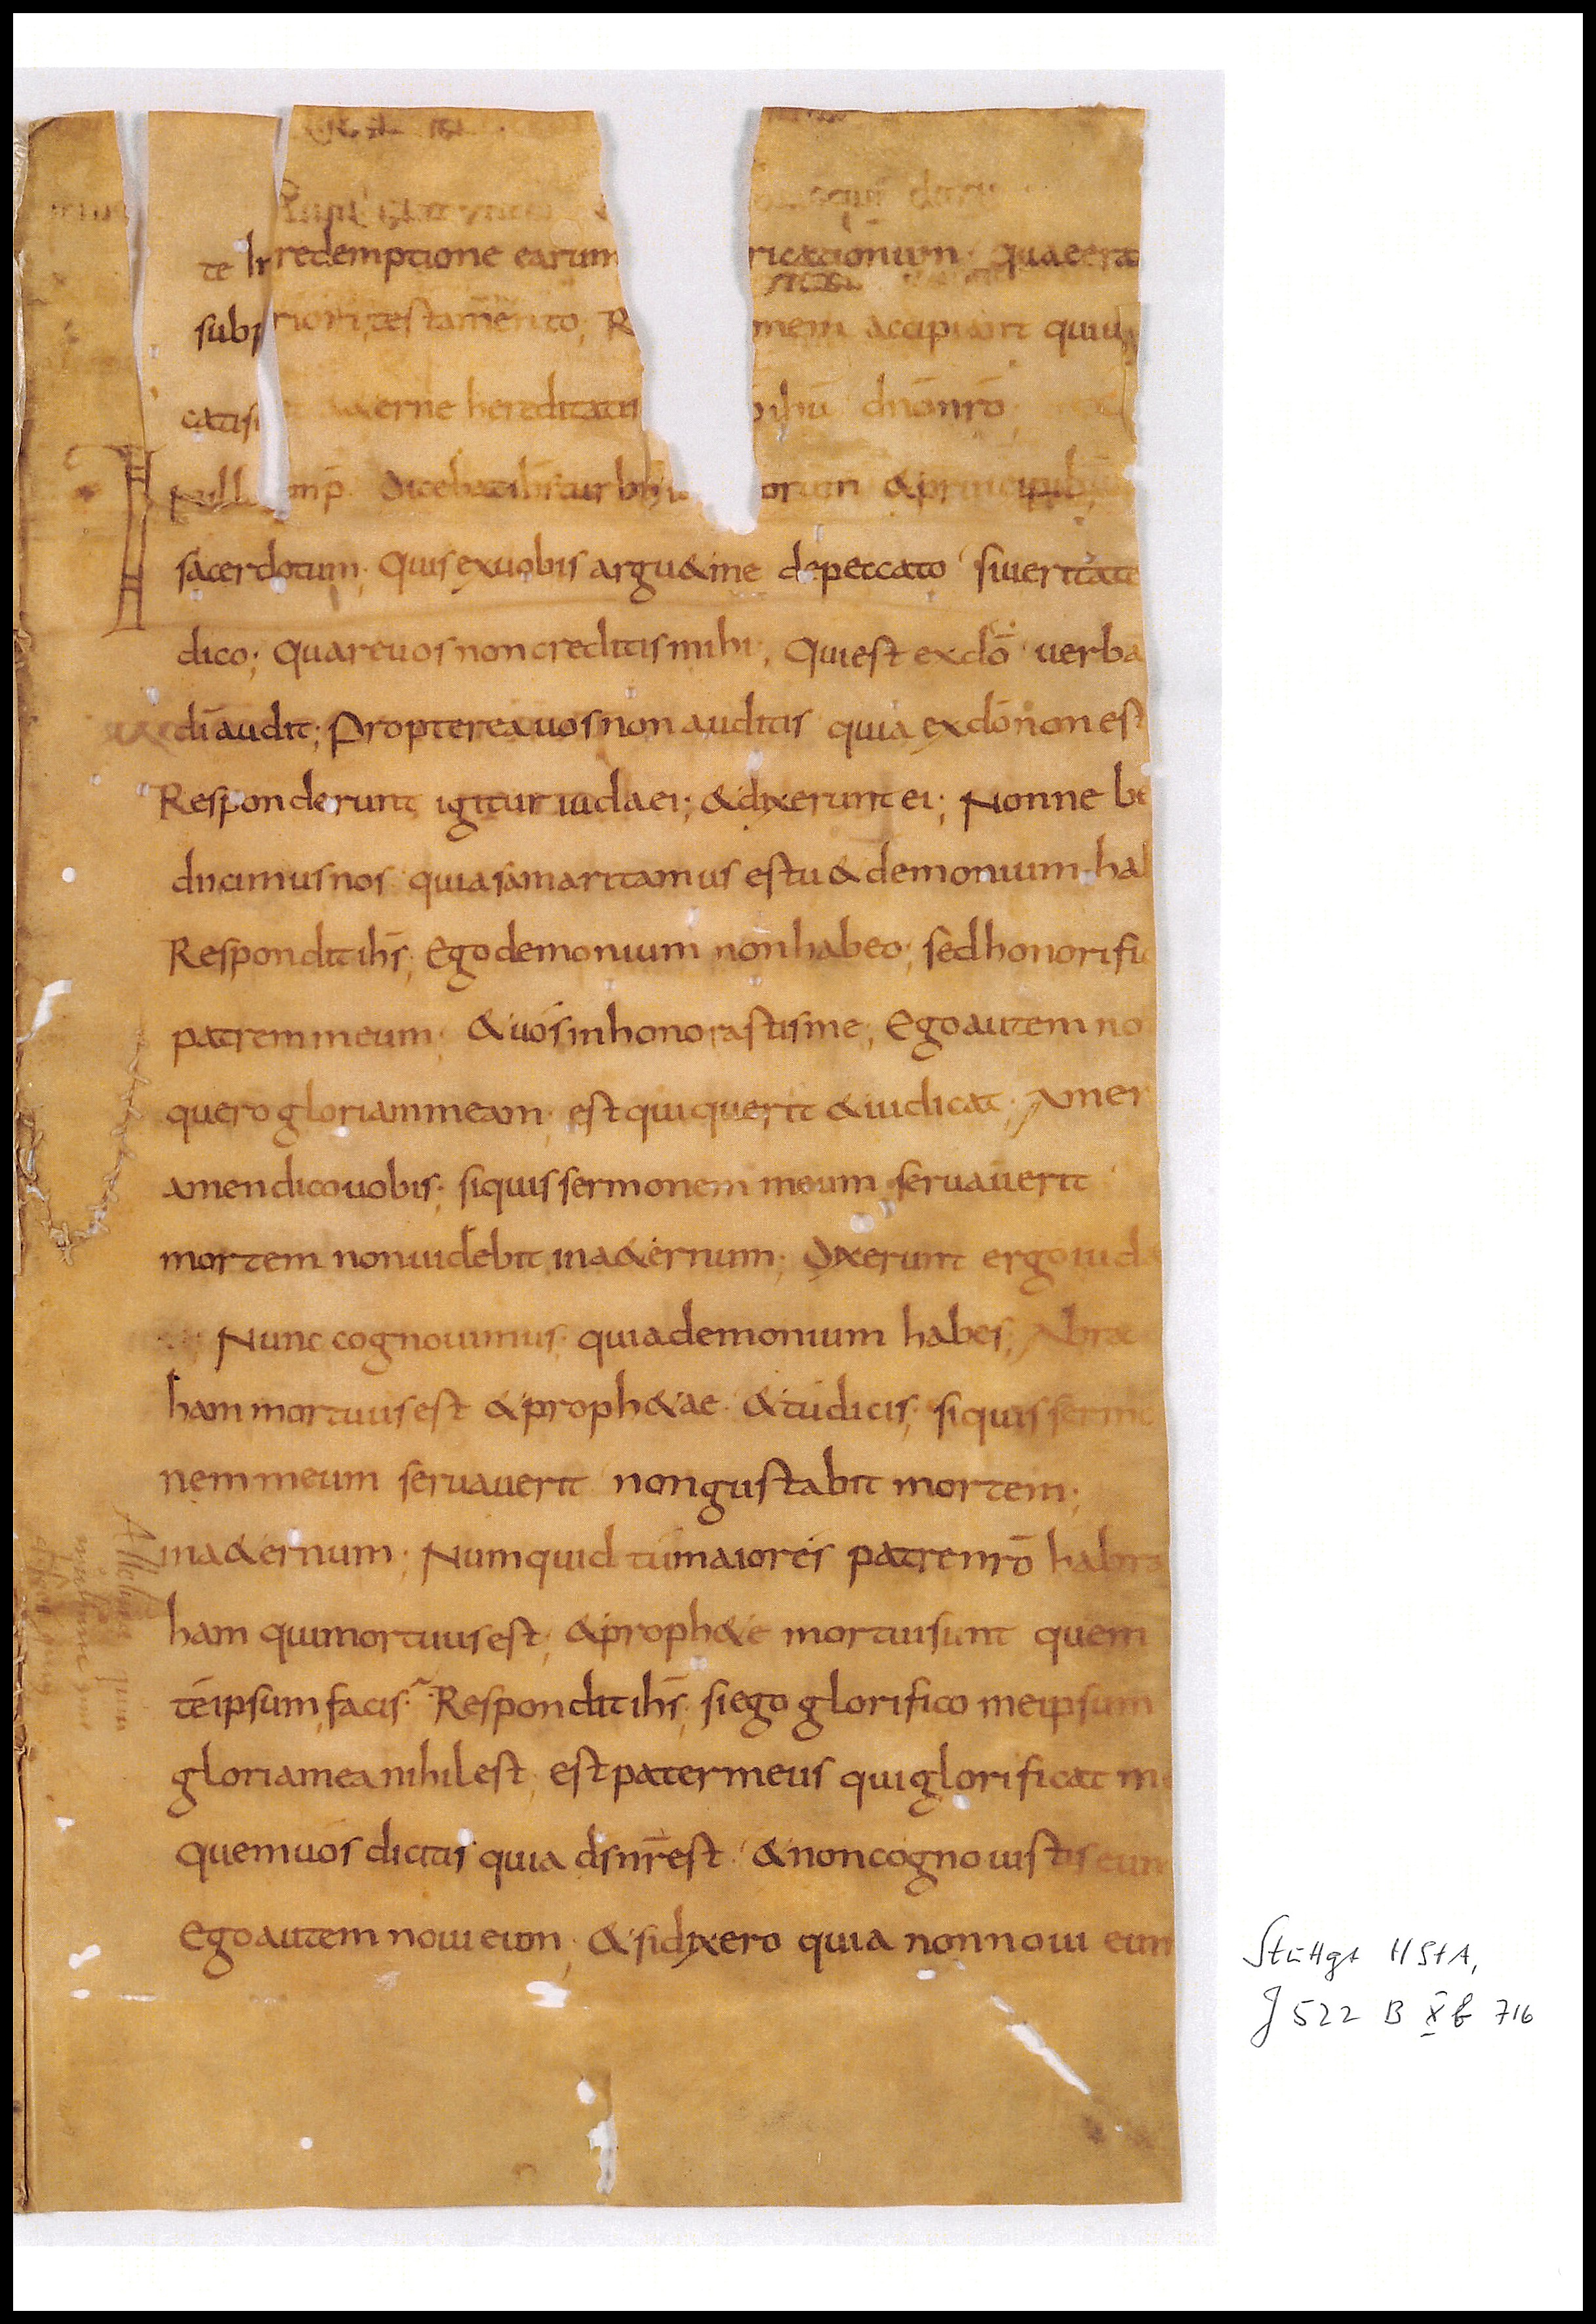 te In redemptione earum ricationum. quae erat
subpriori testamento; R mem accipiant qui uo
cati s aeterne hereditatis ihu dno nro
In illo temp dicebat ihs turbis orum & principib;
sacerdotum. Quis ex uobis argu& me de peccato si ueritate
dico; quare uos non creditis mihi; Qui est ex do uerba
di audit; Propterea uos non auditis quia ex do non est
Responderunt igitur iudaei; & dixerunt ei; Nonne be
dicimus nos quia samaritanus es tu & demonium hab
Respondit ihs; Ego demonium non habeo; sed honorific
patrem meum; & uos inhonorastis me; Ego autem no
quero gloriam meam; est qui querit & iudicat; Amen
amen dico uobis; si quis sermonem meum seruauerit
mortem non uidebit in a&ernum; Dixerunt ergo iudae
Nunc cognouimus quia demonium habes; Abra
ham mortuus est & proph&ae & tu dicis; si quis sermo
nem meum seruauerit non gustabit mortem;
in a&ernum; Numquid tu maior es patre nro habra
ham qui mortuus est; & proph&e mortui sunt quem
te ipsum facis; Respondit ihs; si ego glorifico me ipsum
gloria mea nihil est; est pater meus qui glorificat me
quem uos dicitis quia ds nr est & non cognouistis eum
Ego autem noui eum; & si dixero quia non noui eum
Alleluia
Stuttgt HStA,
J 522 B X b 716